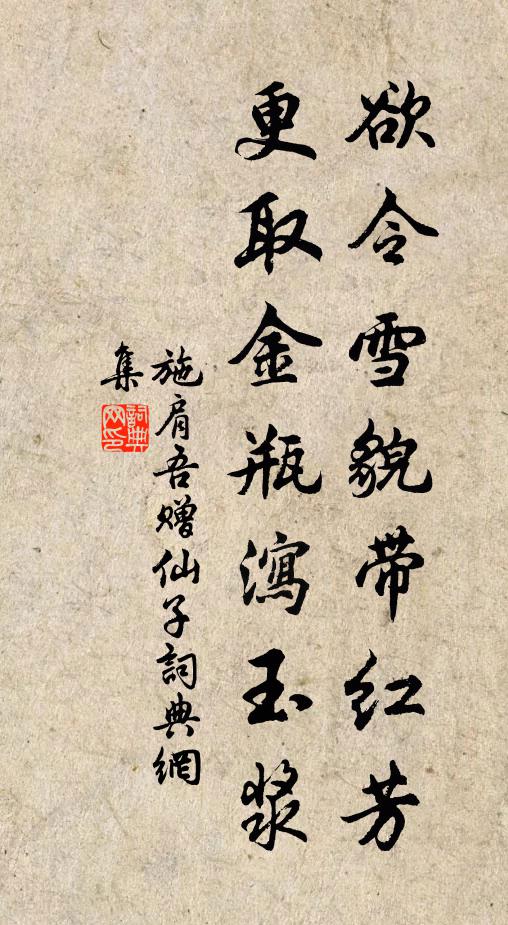 欲令雪貌带红芳
更取金瓶泻玉浆
施肩吾赠仙子詞典網
集
詞典网印